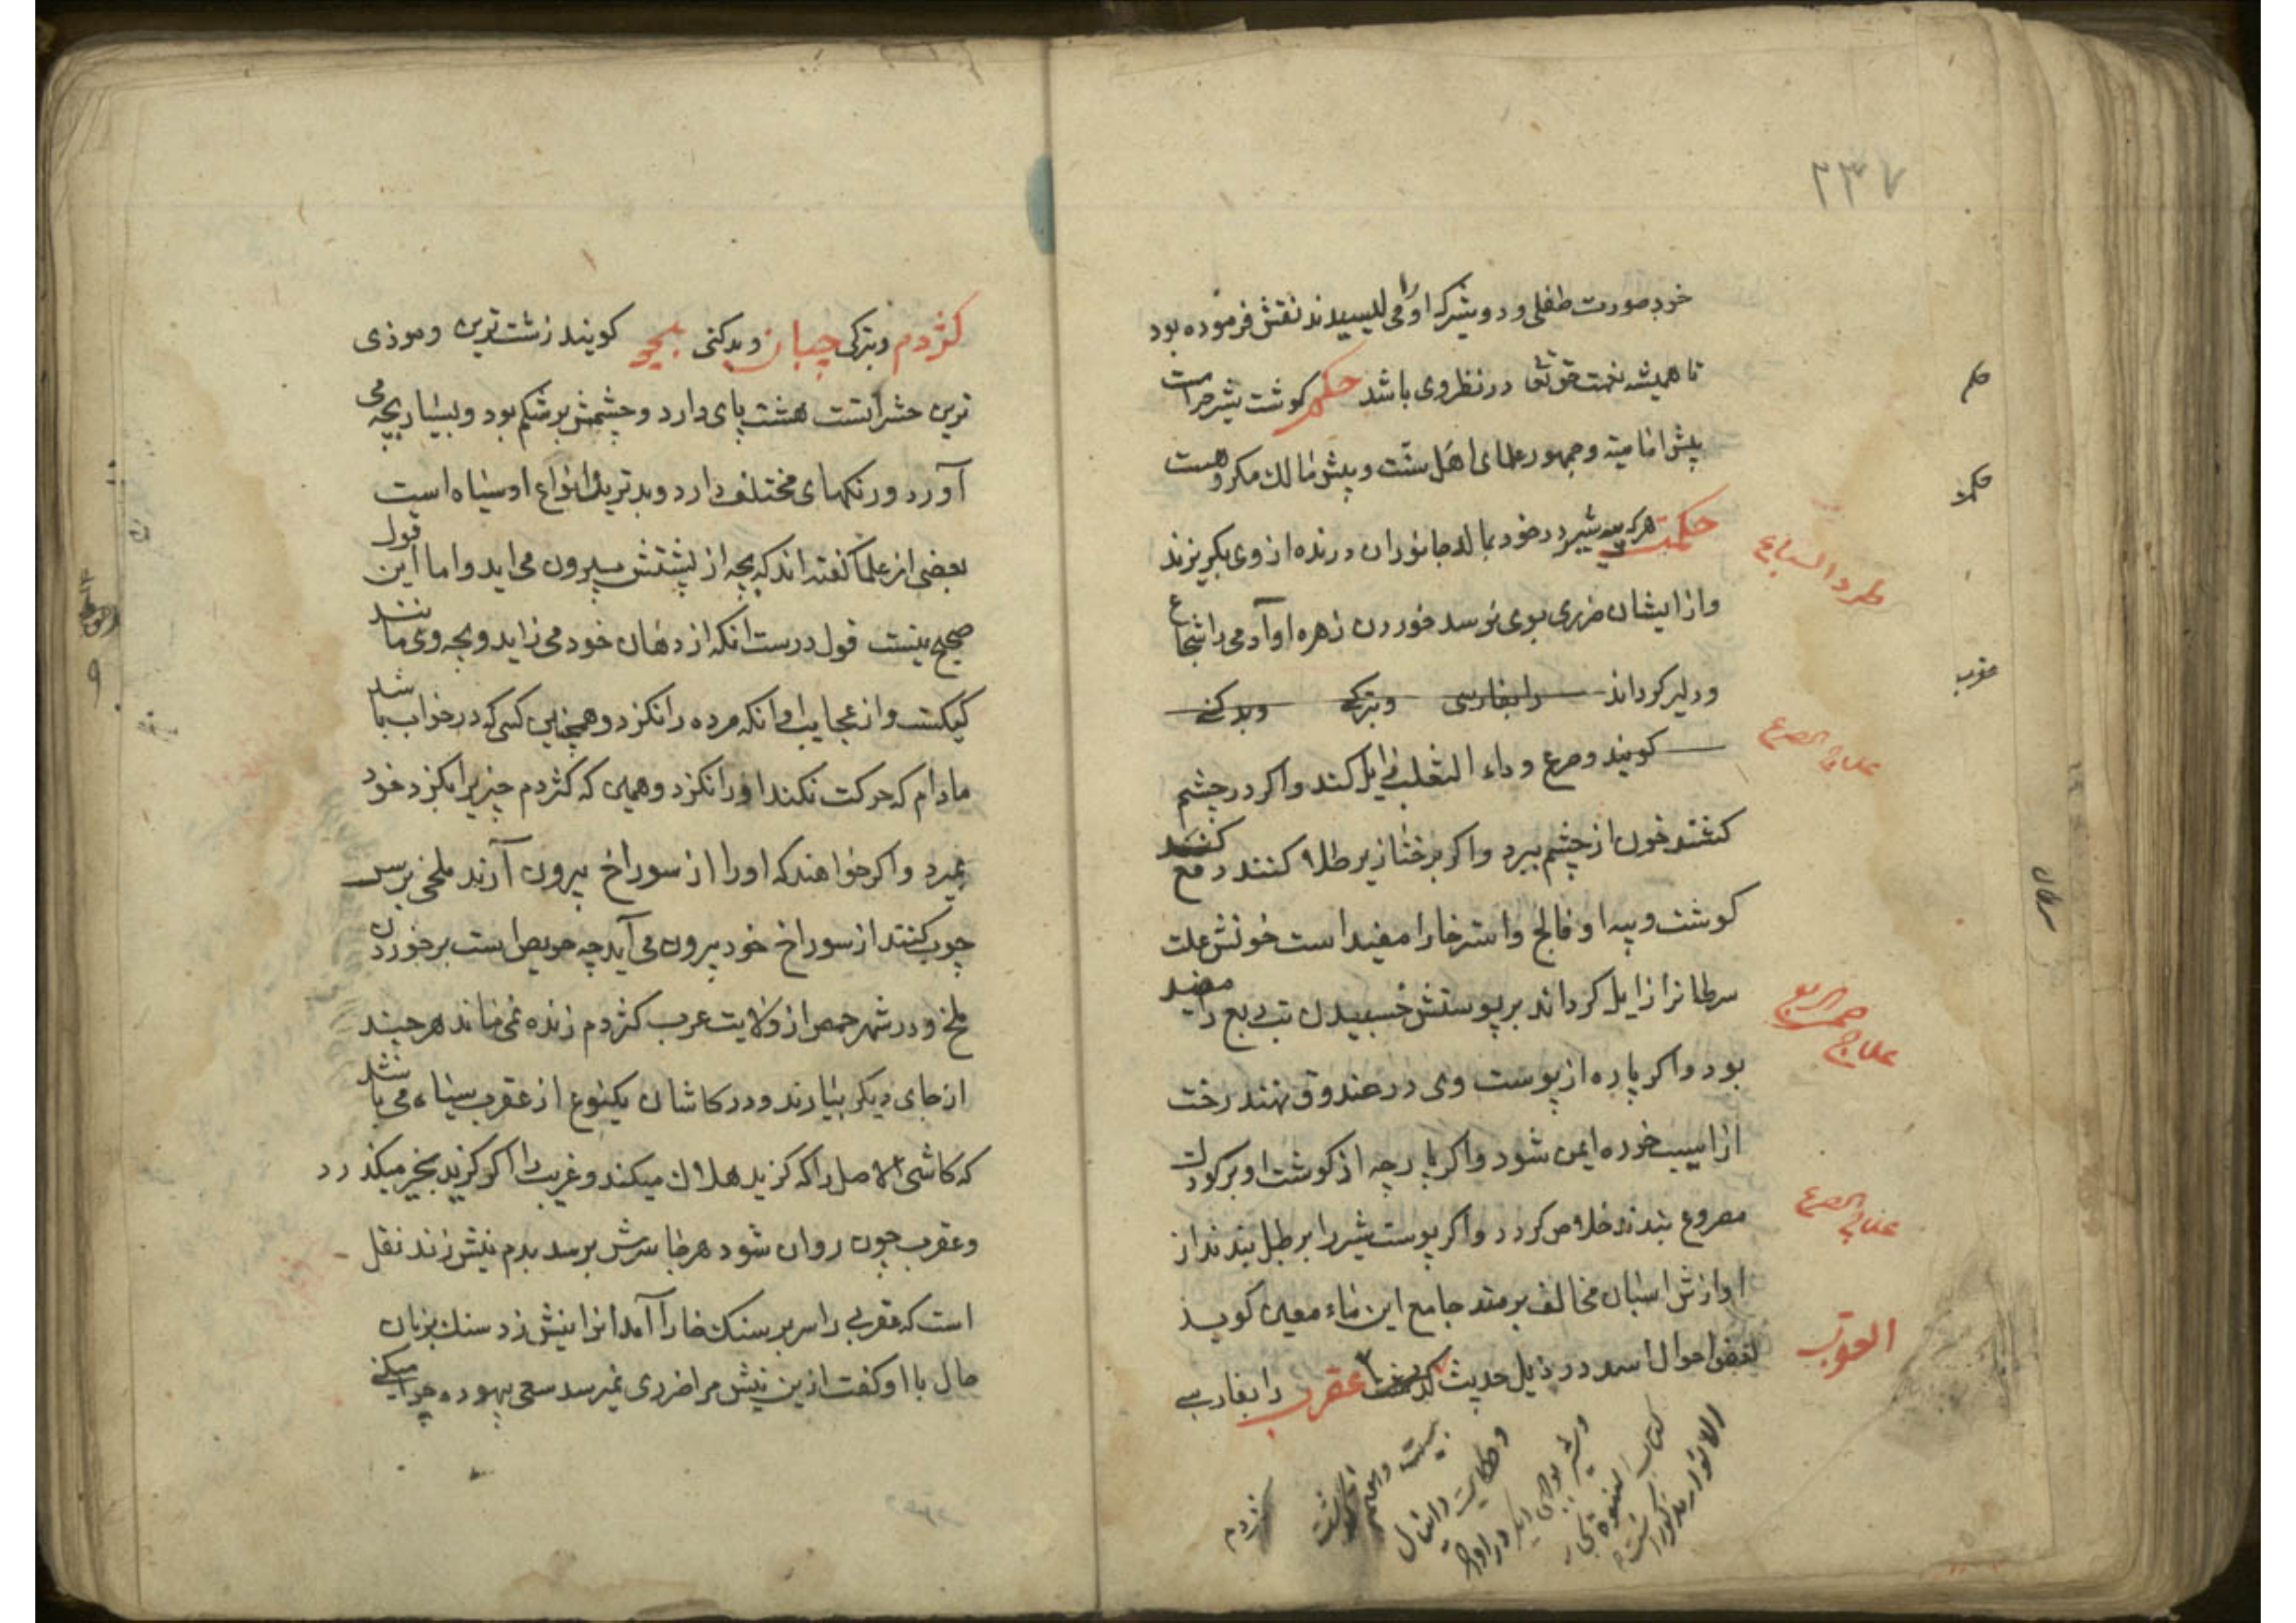 ۲۳۷
خود صورت طفلی و دو شیر که او را می لیسیدند نقش فرموده بود
تا همیشه نعمت حق تعالی در نظر وی باشد حکم گوشت شیر حرامست
پیش امامیه و جمهور علمای اهل سنت و پیش مالک مکروهست
حکمت هر که پیه شیر در خود بمالد جانوران درنده از وی بگریزند
طرد السباع
و از ایشان ضرری بوی نرسد خوردن زهره او آدمی را شجاع
و دلیر گرداند را بفارسی و بترکی و بدکنی
گویند و صرع و داء الثعلب زایل کند و اگر در چشم
علاج الصرع
کشند خون از چشم ببرد و اگر بر خنازیر طلا کنند دفع کند
گوشت و پیه او فالج و استرخا را مفید است خونش علت
سرطانرا زایل گرداند بر پوستش خسبیدن تب ربع را مفید
علاج حمی الربع
بود و اگر پاره از پوست وی در صندوق نهند رخت
از اسیب خوره ایمن شود و اگر پارچه از گوشت او بر کودک
مصروع بندند خلاص گردد و اگر پوست شیر را بر طبل بندند از
علاج الصرع
اوازش اسبان مخالف برمند جامع این نامه معین گوید
بعض احوال اسد در ذیل حدیث گذشت عقرب را بفارسی
العقرب
بیست و هفتم
و حکایت دانیال
و شیر
کتاب النبوة بحار
الانوار مذکور است
کژدم
حکم
حکمت
عقرب
سرطان
کژدم و بترکی چیان و بدکنی بچو گویند زشت ترین و موذی
ترین حشراتست هشت پای دارد و چشمش بر شکم بود و بسیار بچه می
آورد و رنگهای مختلف دارد و بدترین انواع او سیاه است
بعضی از علما گفته اند که بچه از پشتش بیرون می اید و اما این قول
صحیح نیست قول درست انکه از دهان خود می زاید و بچه وی مانند
کیکست و از عجایب او انکه مرده را نگزد و همچنین کسی که در خواب باشد
مادام که حرکت نکند او را نگزد و همین که کژدم چیزیرا بگزد خود
بمیرد و اگر خواهند که او را از سوراخ بیرون آرند ملخی بر سر
چوب کنند از سوراخ خود بیرون می آید چه حریص است بر خوردن
ملخ و در شهر حمص از ولایت عرب کژدم زنده نمی ماند هر چند
از جای دیگر بیارند و در کاشان یکنوع از عقرب سیاه می باشد
که کاشی الاصل را که گزید هلاک میکند و غریب را اگر گزید بخیر میگذرد
و عقرب چون روان شود هر جا سرش برسد بدم نیش زند نقل
است که عقربی را سر بر سنگ خارا آمد انرا نیش زد سنگ بزبان
حال با او گفت ازین نیش مرا ضرری نمیرسد سعی بیهوده چرا میکنی